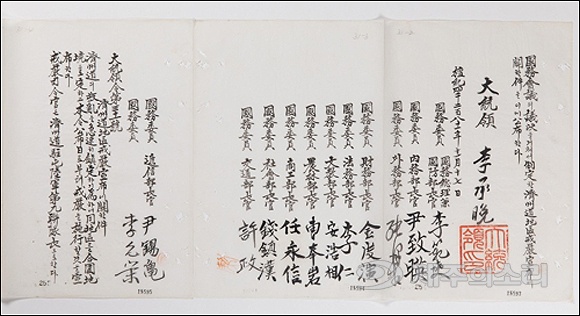 國務會議의 議決을 거쳐서 制定한 濟州道地區戒嚴宣布에
關한 件을 이에 公布한다
大統領 李承晩
檀紀四二八一年十一月十七日
國務委員 國務總理兼國防部長官 李範奭
國務委員 內務部長官 尹致暎
國務委員 外務部長官
國務委員 財務部長官 金度演
國務委員 法務部長官 李仁
國務委員 文敎部長官 安浩相
國務委員 農林部長官 曺奉岩
國務委員 商工部長官 任永信
國務委員 社會部長官 錢鎭漢
國務委員 交通部長官 許政
國務委員 遞信部長官 尹錫龜
國務委員 李允榮
大統領令第三十一號
濟州道地區戒嚴宣布에 關한 件
濟州道의 叛亂을 急速히 鎭定하기 爲하여 同地區를 合圍地
境으로 定하고 本令 公布日로부터 戒嚴을 施行할 것을 宣
布한다
戒嚴司令官은 濟州道駐屯陸軍第九聯隊長으로 한다
제주의소리